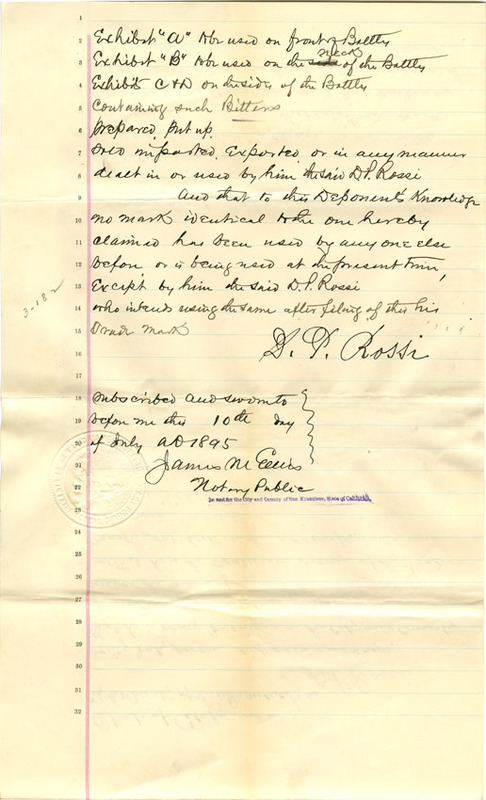 1
2 Exhibit "A" to be used on front of Bottles
3 Exhibit "B" to be used on the neck of the Bottles
4 Exhibits C & D on the sides of the Bottles
5 Containing such Bitters
6 prepared, put up,
7 Sold imported, Exported, or in any manner
8 dealt in or used by him the said D. P. Rossi
9 and that to this Deponent's Knowledge
10 no mark identical to the one hereby
11 claimed has been used by any one else
12 before, or is being used at the present time,
13 Except by him the said D. P. Rossi
3-182
14 who intends using the same after filing of this his
15 Trade mark
16 D. P. Rossi
17
18 Subscribed and sworn to
19 before me this 10th day
20 of July AD 1895
21 James M Ellis
22 Notary Public
In and for the City and County of San Francisco, State of California
23
24
25
26
27
28
29
30
31
32